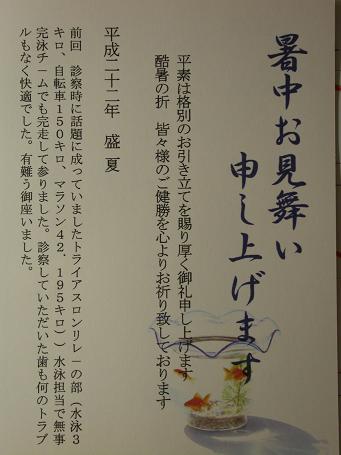 暑中お見舞い
申し上げます
平素は格別のお引き立てを賜り厚く御礼申し上げます
酷暑の折　皆々様のご健勝を心よりお祈り致しております
平成二十二年　盛夏
前回　診察時に話題に成っていましたトライアスロンリレ－の部（水泳３
キロ、自転車１５０キロ、マラソン４２．１９５キロ））水泳担当で無事
完泳チ－ムでも完走して参りました。診察していただいた歯も何のトラブ
ルもなく快適でした。有難う御座いました。